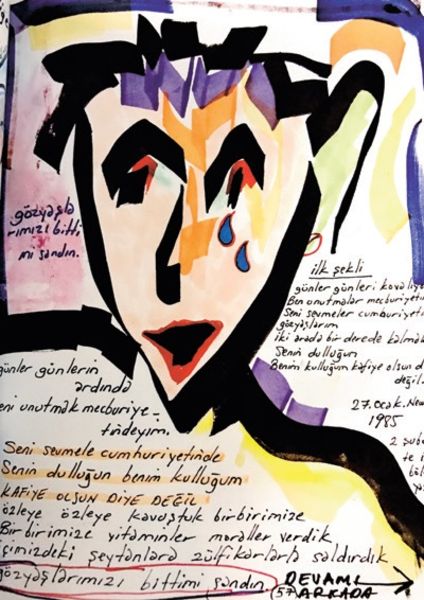 gözyaşla
rımızı bitti
mi sandın.
ilk şekli
günler günleri kovalıyo
Ben unutmalar mecburiyetin
Seni sevmeler cumhuriyetin
gözyaşlarım
iki arada bir derede kalmak
Senin dulluğun
Benim kulluğum kafiye olsun d
değil.
27.ocak.New
1985
2 şuba
günler günlerin
ardında
eni unutmak mecburiye-
tindeyim.
Seni sevmele cumhuriyetinde
Senin dulluğun benim kulluğum
KAFİYE OLSUN DİYE DEĞİL
özleye özleye kavuştuk birbirimize
Birbirimize vitaminler moraller verdik
çimizdeki şeytanlara zülfikarlarla saldırdık
gözyaşlarımızı bittimi sandın
DEVAMI
57 ARKADA